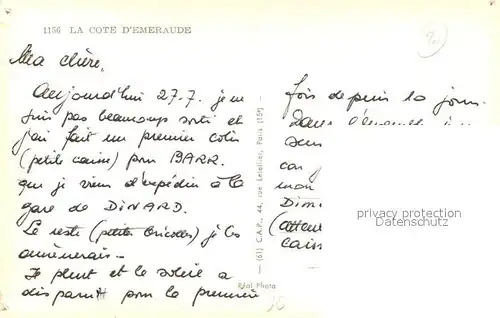 1156 LA COTE D'EMERAUDE
Ma chère,
Aujourd'hui 27.7. je ne
suis pas beaucoup sorti et
j'ai fait un premier colis
(petite caisse) pour BARR.
que je viens d'expédier à la
gare de DINARD.
Le reste (petites bricoles) je les
amènerais -
Il pleut et le soleil a
disparu pour la première
(61) C.A.P., 44, rue Letellier, Paris (15e)
Réal Photo
fois depuis la journ
Dans l'
sem
car
mon
Dim
(atten
caiss
privacy protection
Datenschutz